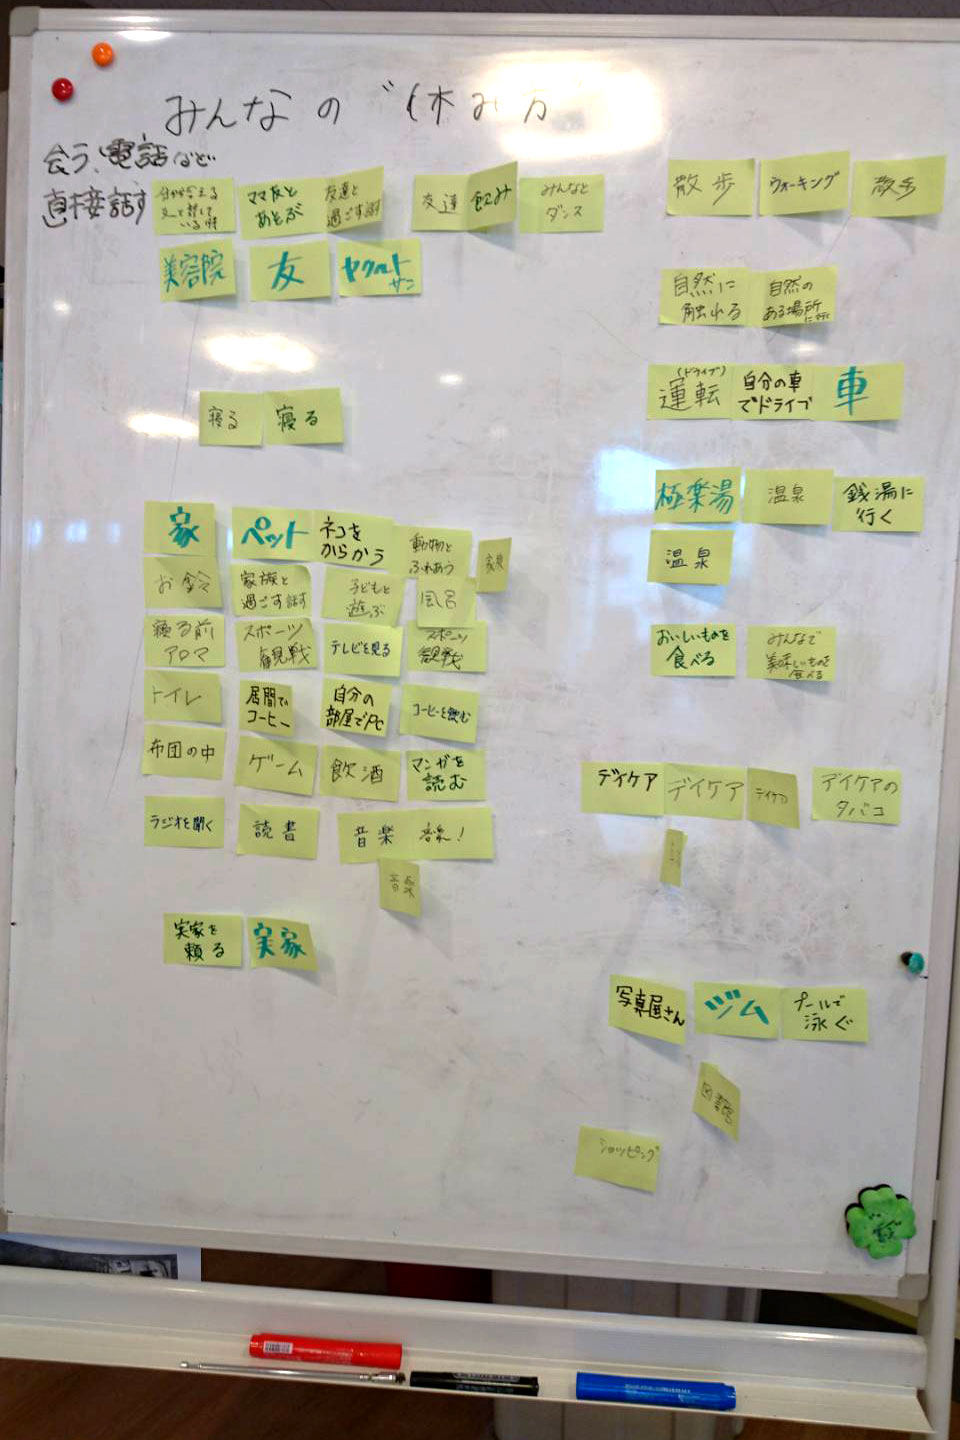 みんなの"休み方"
会う、電話など
直接話す
ママ友と
あそぶ
友達と
過ごす 話す
友達
飲み
みんなと
ダンス
美容院
友
ヤクルト
サン
散歩
ウォーキング
散歩
自然に
触れる
自然の
ある場所
に行く
(ドライブ)
運転
自分の車
でドライブ
車
寝る
寝る
極楽湯
温泉
銭湯に
行く
温泉
家
ペット
ネコを
からかう
動物と
ふれあう
家族
家族と
過ごす 話す
子どもと
遊ぶ
風呂
寝る前
アロマ
スポーツ
観戦
テレビを見る
スポーツ
観戦
おいしいものを
食べる
みんなで
美味しいものを
食べる
トイレ
居間で
コーヒー
自分の
部屋でPC
コーヒーを飲む
布団の中
ゲーム
飲酒
マンガを
読む
デイケア
デイケア
デイケア
デイケアの
タバコ
ラジオを聞く
読書
音楽
音楽!
音楽
実家を
頼る
実家
写真屋さん
ジム
プールで
泳ぐ
図書館
ショッピング